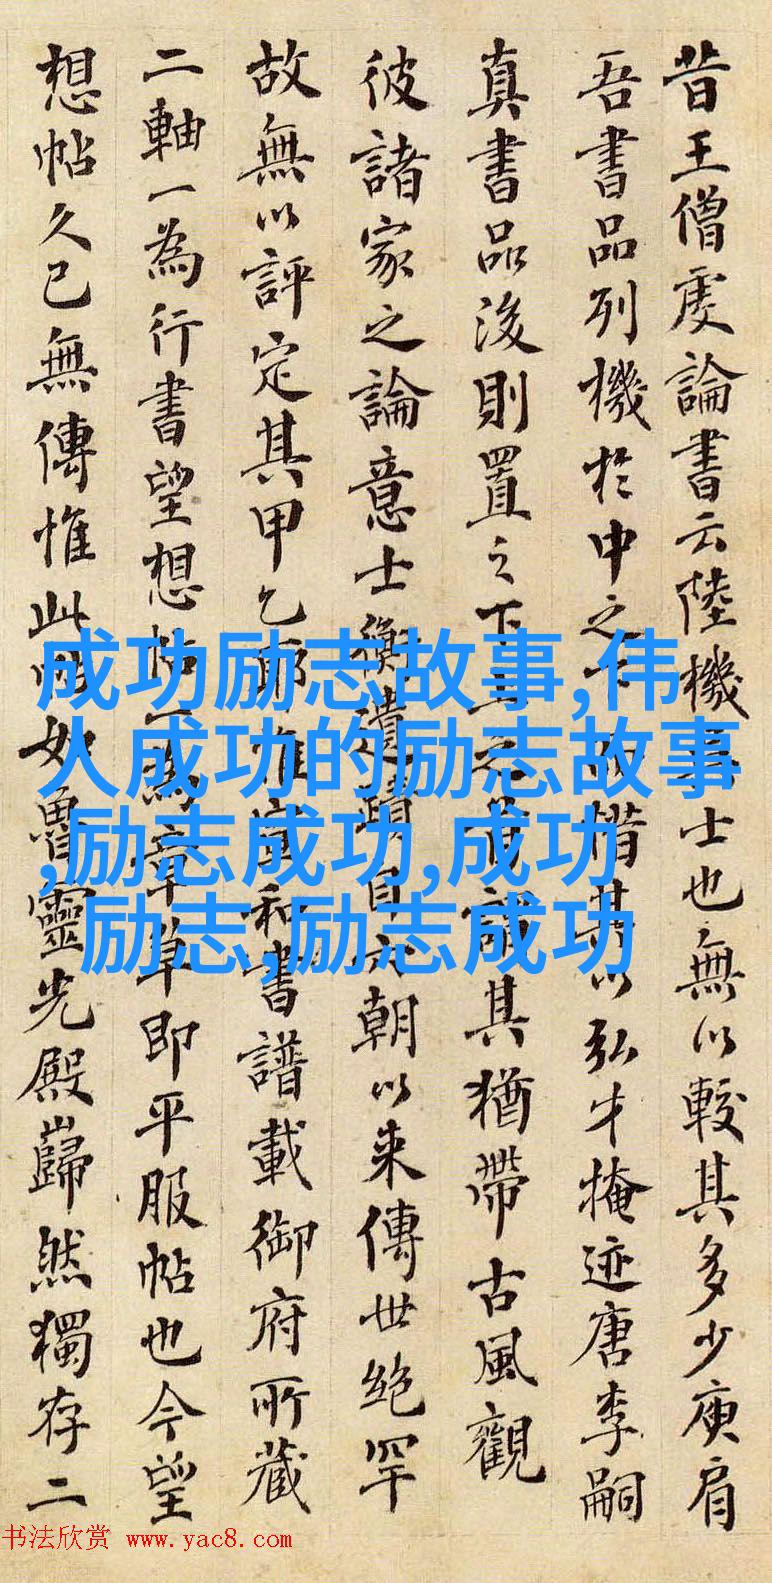 昔王僧虔論書云陸機吳士也無以較其多少庾肩
吾書品列機於中之惜其以弘才掩迹唐李嗣
真書品後則置之下上之首謂其猶帶古風觀
彼諸家之論意士衡遺蹟自六朝以来傳世絶罕
故無以評定其甲乙耶惟宣和書譜載御府所藏
二軸一為行書望想帖一為章草即平服帖也今望
想帖久已無傳惟此帖如魯靈光殿巋然獨存二
成功励志故事,伟
人成功的励志故事
,励志成功,成功
励志,励志成功
书法欣赏 www.yac8.com